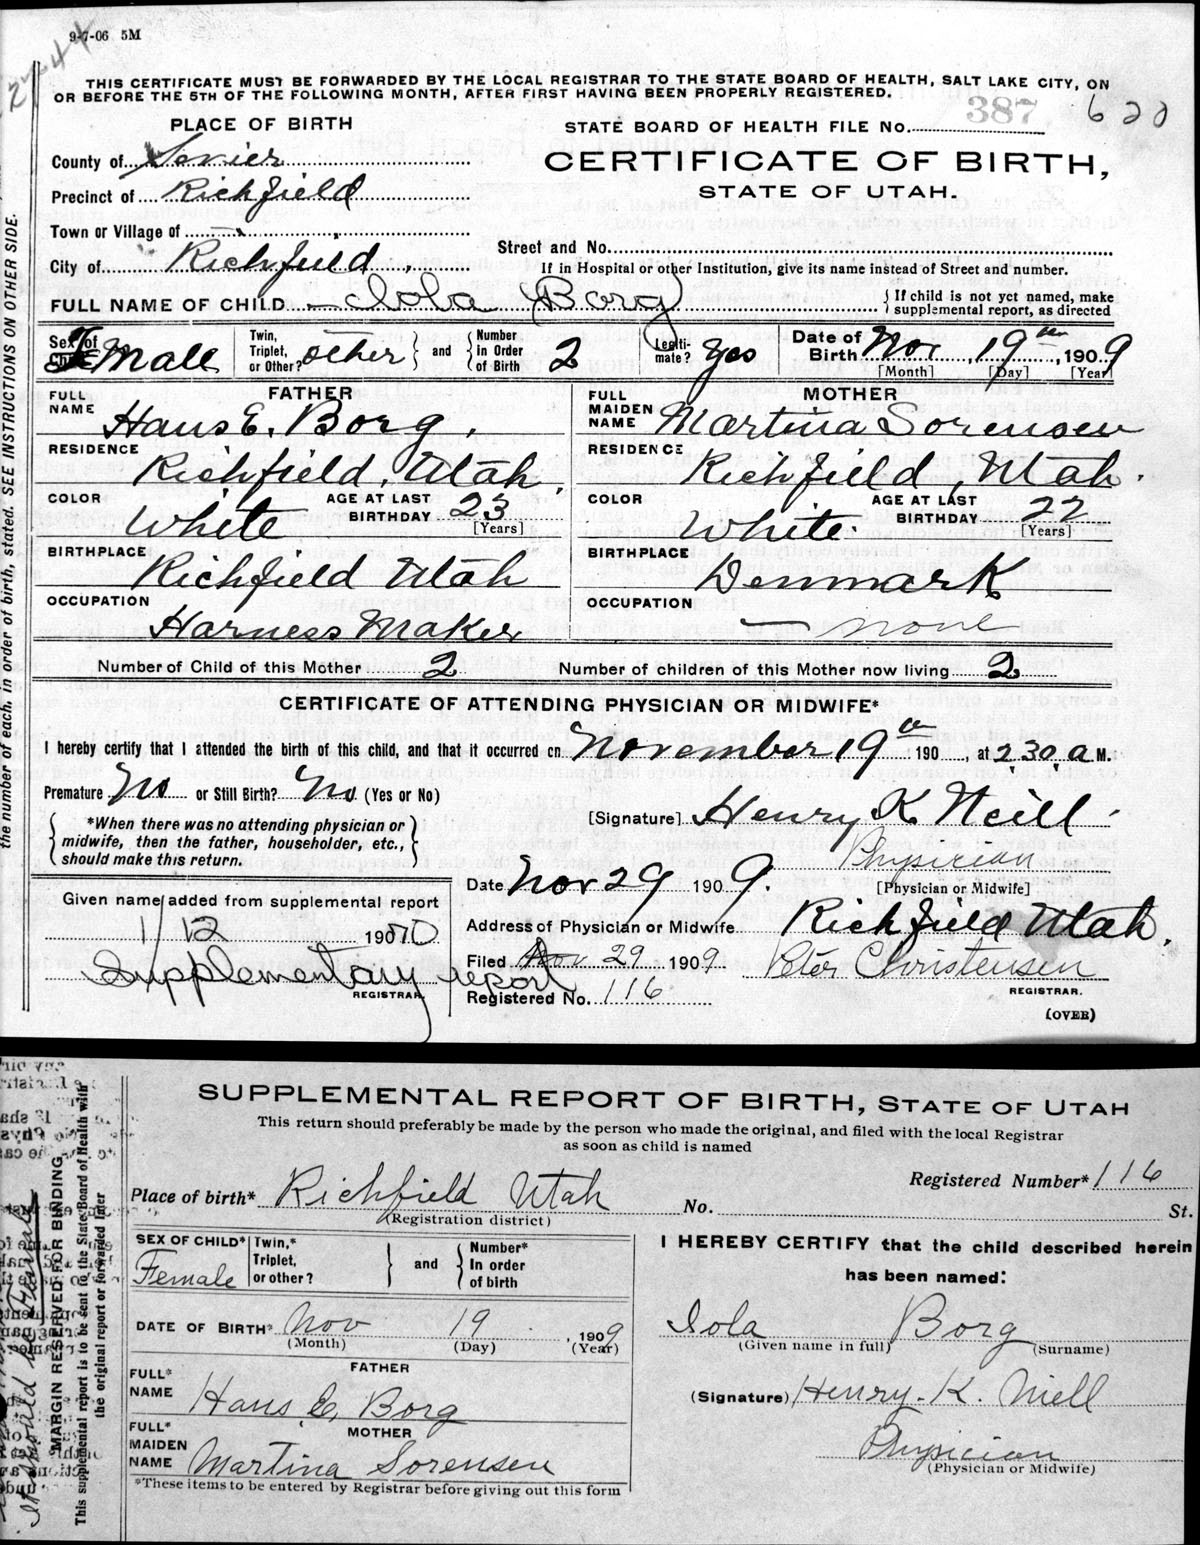 9-7-06 5M
2744
THIS CERTIFICATE MUST BE FORWARDED BY THE LOCAL REGISTRAR TO THE STATE BOARD OF HEALTH, SALT LAKE CITY, ON
OR BEFORE THE 5TH OF THE FOLLOWING MONTH, AFTER FIRST HAVING BEEN PROPERLY REGISTERED.
PLACE OF BIRTH
STATE BOARD OF HEALTH FILE No. 387 620
County of Sevier
CERTIFICATE OF BIRTH,
Precinct of Richfield
STATE OF UTAH.
Town or Village of
Street and No.
City of Richfield
If in Hospital or other Institution, give its name instead of Street and number.
FULL NAME OF CHILD Iola Borg
If child is not yet named, make
supplemental report, as directed
Sex of Child Male
Twin, Triplet, or Other? other and Number in Order of Birth 2
Legitimate? Yes
Date of Birth Nov 19th, 1909
[Month] [Day] [Year]
FATHER
MOTHER
FULL NAME Hans E. Borg.
FULL MAIDEN NAME Martina Sorensen
RESIDENCE Richfield, Utah.
RESIDENCE Richfield, Utah.
COLOR White AGE AT LAST BIRTHDAY 23 [Years]
COLOR White. AGE AT LAST BIRTHDAY 22 [Years]
BIRTHPLACE Richfield Utah
BIRTHPLACE Denmark
OCCUPATION Harness Maker
OCCUPATION none
Number of Child of this Mother 2 Number of children of this Mother now living 2
CERTIFICATE OF ATTENDING PHYSICIAN OR MIDWIFE*
I hereby certify that I attended the birth of this child, and that it occurred on November 19th 190 , at 2.30 a M.
Premature No or Still Birth? No (Yes or No)
*When there was no attending physician or
midwife, then the father, householder, etc.,
should make this return.
[Signature] Henry K Neill
Physician
[Physician or Midwife]
Date Nov 29 1909.
Given name added from supplemental report
1/12 1910
Supplementary report
REGISTRAR.
Address of Physician or Midwife Richfield Utah.
Filed Nov 29 1909 Peter Christensen
REGISTRAR.
Registered No. 116
(OVER)
the number of each, in order of birth, stated. SEE INSTRUCTIONS ON OTHER SIDE.
SUPPLEMENTAL REPORT OF BIRTH, STATE OF UTAH
This return should preferably be made by the person who made the original, and filed with the local Registrar
as soon as child is named
Registered Number* 116
Place of birth* Richfield Utah No. St.
(Registration district)
SEX OF CHILD* Female
Twin,* Triplet, or other? and Number* In order of birth
DATE OF BIRTH* Nov 19, 1909
(Month) (Day) (Year)
FATHER
FULL* NAME Hans E. Borg
MOTHER
FULL* MAIDEN NAME Martina Sorensen
*These items to be entered by Registrar before giving out this form
I HEREBY CERTIFY that the child described herein
has been named:
Iola Borg
(Given name in full) (Surname)
(Signature) Henry. K. Niell
Physician
(Physician or Midwife)
MARGIN RESERVED FOR BINDING
This supplemental report is to be sent to the State Board of Health with
the original report or forwarded later
It should be Female